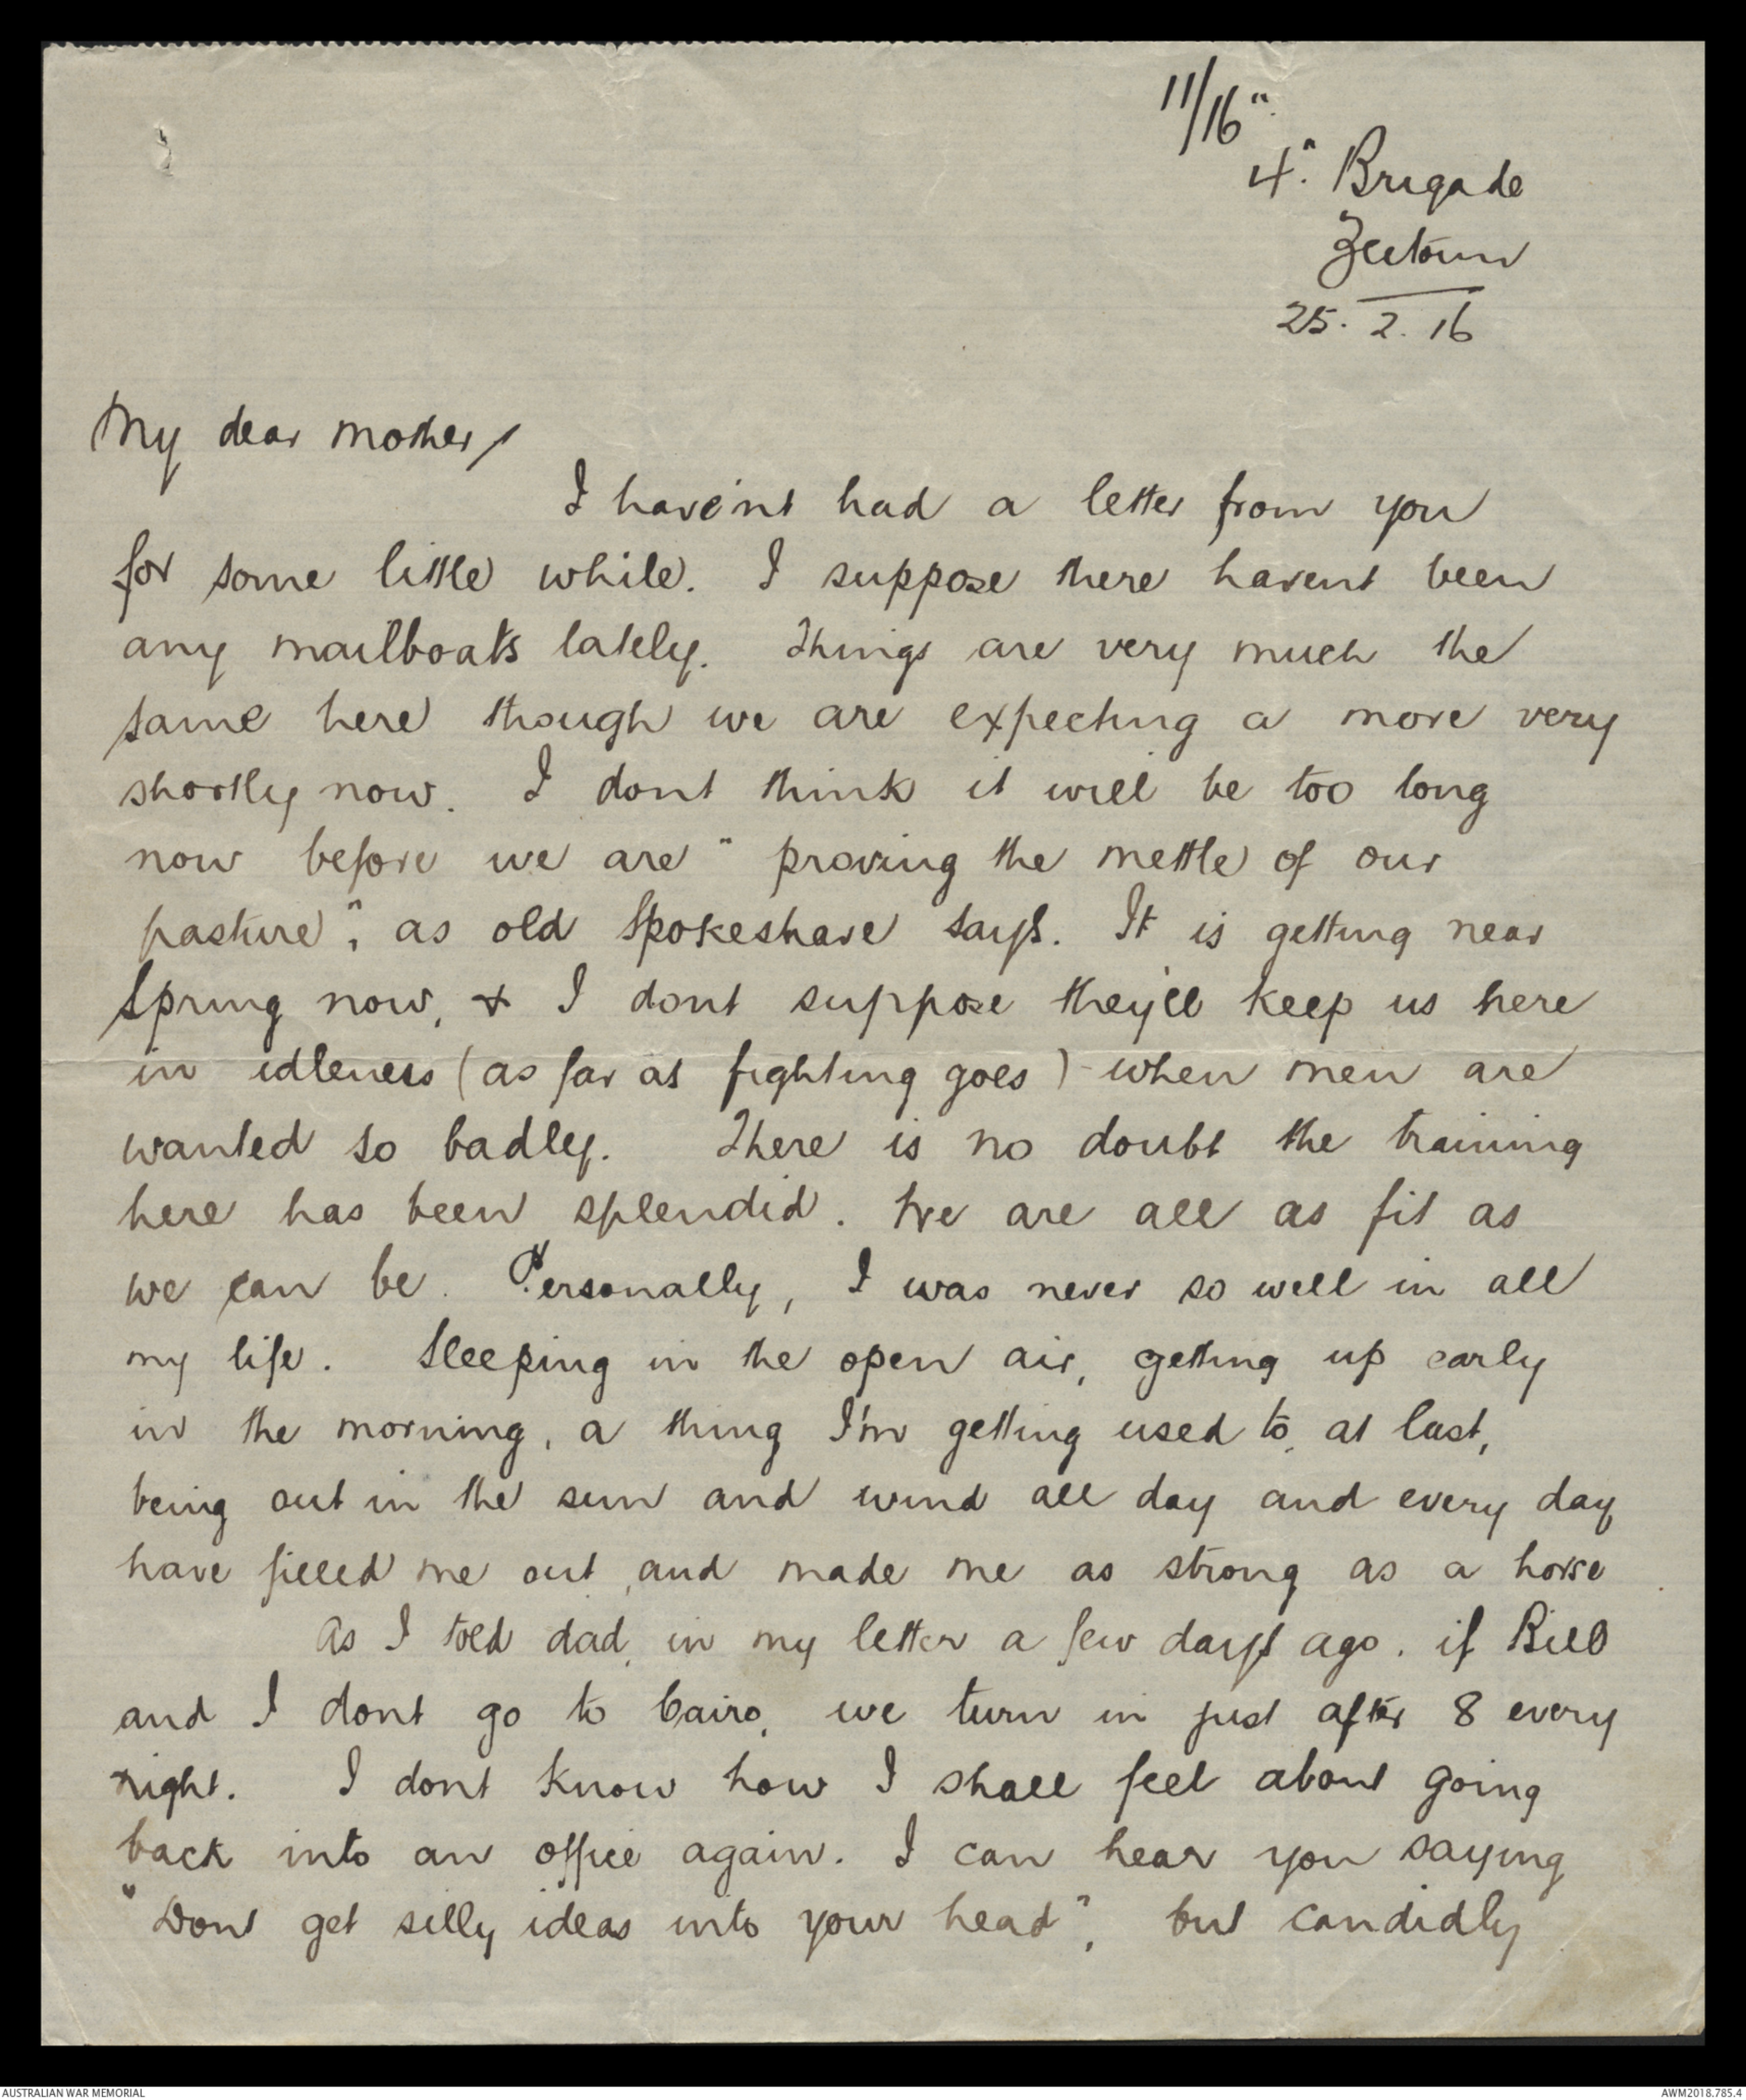 11/16"
4". Brigade
Zeitoun
25. 2. 16
My dear mother,
I have'nt had a letter from you
for some little while. I suppose there havent been
any mailboats lately. Things are very much the
same here though we are expecting a move very
shortly now. I dont think it will be too long
now before we are "proving the mettle of our
pasture", as old Spokeshave says. It is getting near
Spring now, & I dont suppose they'll keep us here
in idleness (as far as fighting goes) when men are
wanted so badly. There is no doubt the training
here has been splendid. We are all as fit as
we can be. Personally, I was never so well in all
my life. Sleeping in the open air, getting up early
in the morning, a thing I'm getting used to, at last,
being out in the sun and wind all day and every day
have filled me out, and made me as strong as a horse.
As I told dad, in my letter a few days ago, if Bill
and I dont go to Cairo, we turn in just after 8 every
night. I dont know how I shall feel about going
back into an office again. I can hear you saying
"Dont get silly ideas into your head", but candidly
AUSTRALIAN WAR MEMORIAL
AWM2018.785.4